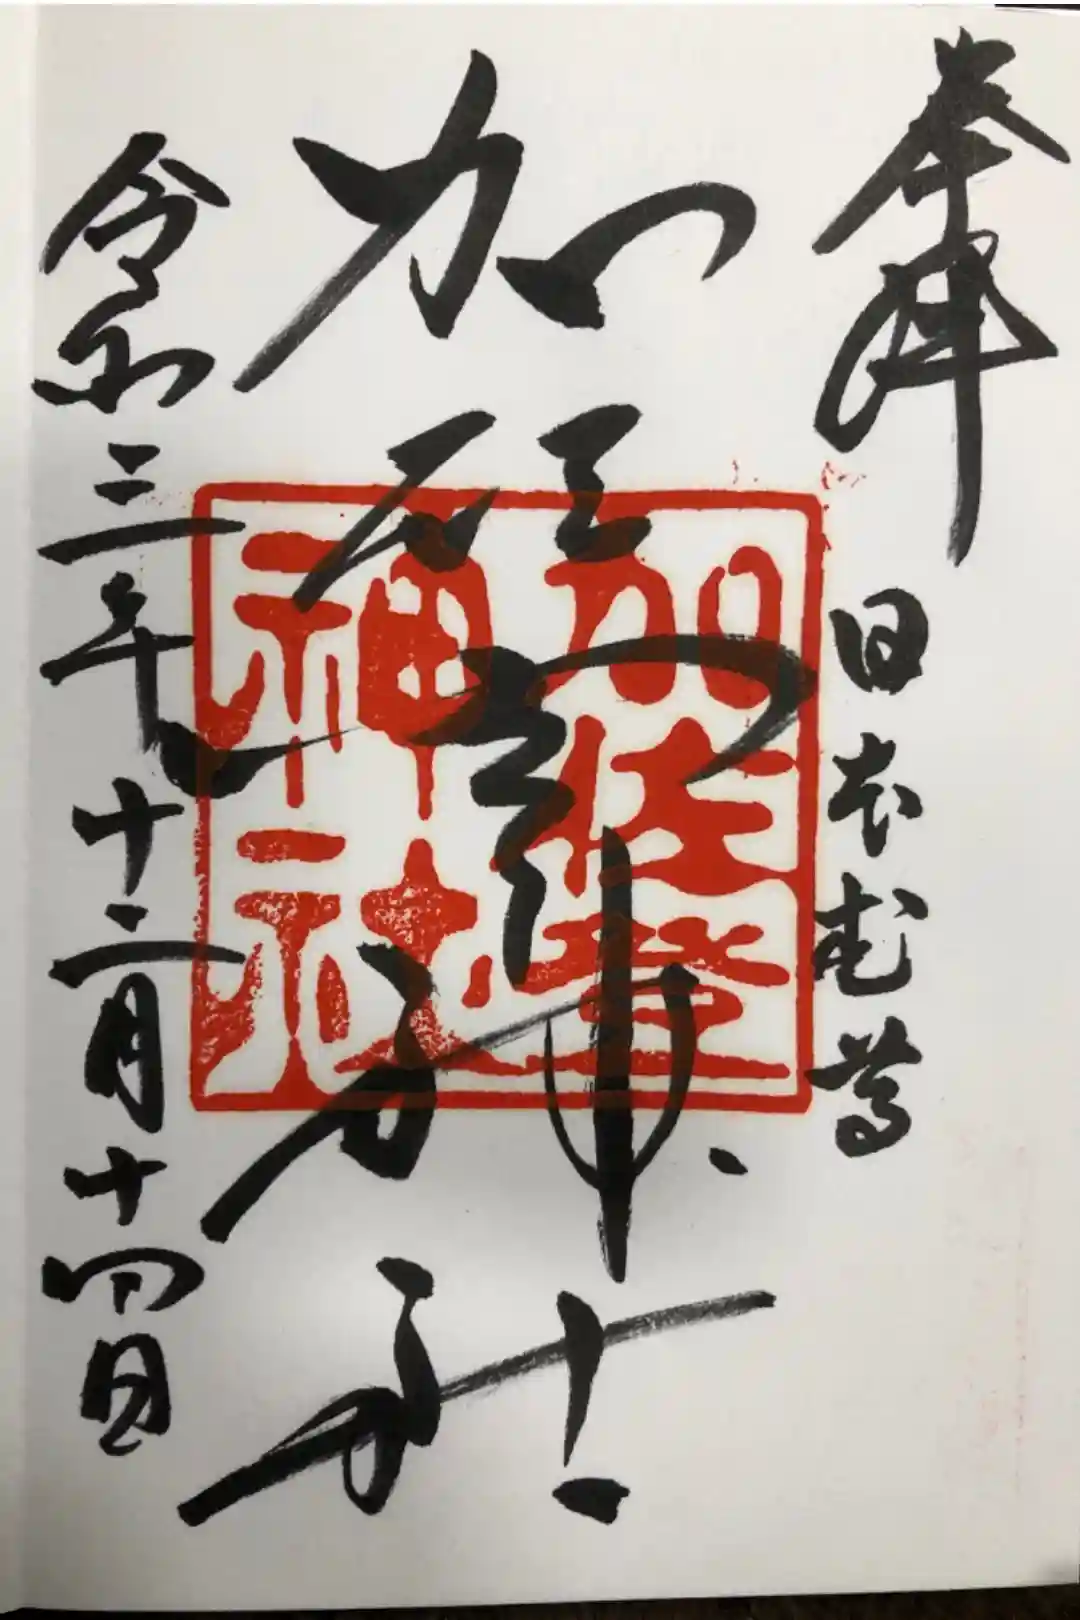 奉拝
日本武尊
加佐登神社
令和三年十二月十四日
加佐登
神社